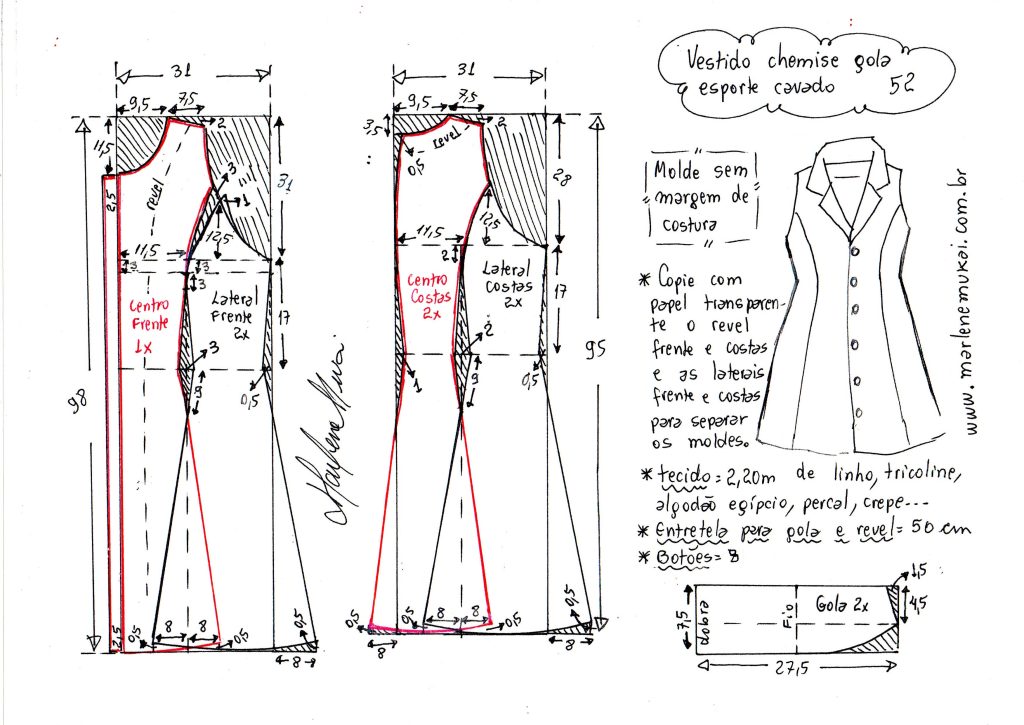 Vestido chemise gola
esporte cavado 52
Molde sem
margem de
costura
* Copie com
papel transparen-
te o revel
frente e costas
e as laterais
frente e costas
para separar
os moldes.
* tecido = 2,20m de linho, tricoline,
algodão egípcio, percal, crepe...
* Entretela para gola e revel = 50 cm
* Botões = 8
www.marlenemukai.com.br
31
9,5
7,5
2
11,5
2,5
revel
3
1
31
12,5
11,5
3
3
3
Centro
Frente
1x
Lateral
Frente
2x
17
3
9
0,5
98
2,5
0,5
8
8
0,5
0,5
8
31
9,5
7,5
2
3,5
0,5
revel
28
12,5
11,5
2
Centro
Costas
2x
Lateral
Costas
2x
17
2
1
9
0,5
95
0,5
8
8
0,5
0,5
8
8
1,5
7,5
dobra
Fio
Gola 2x
4,5
27,5